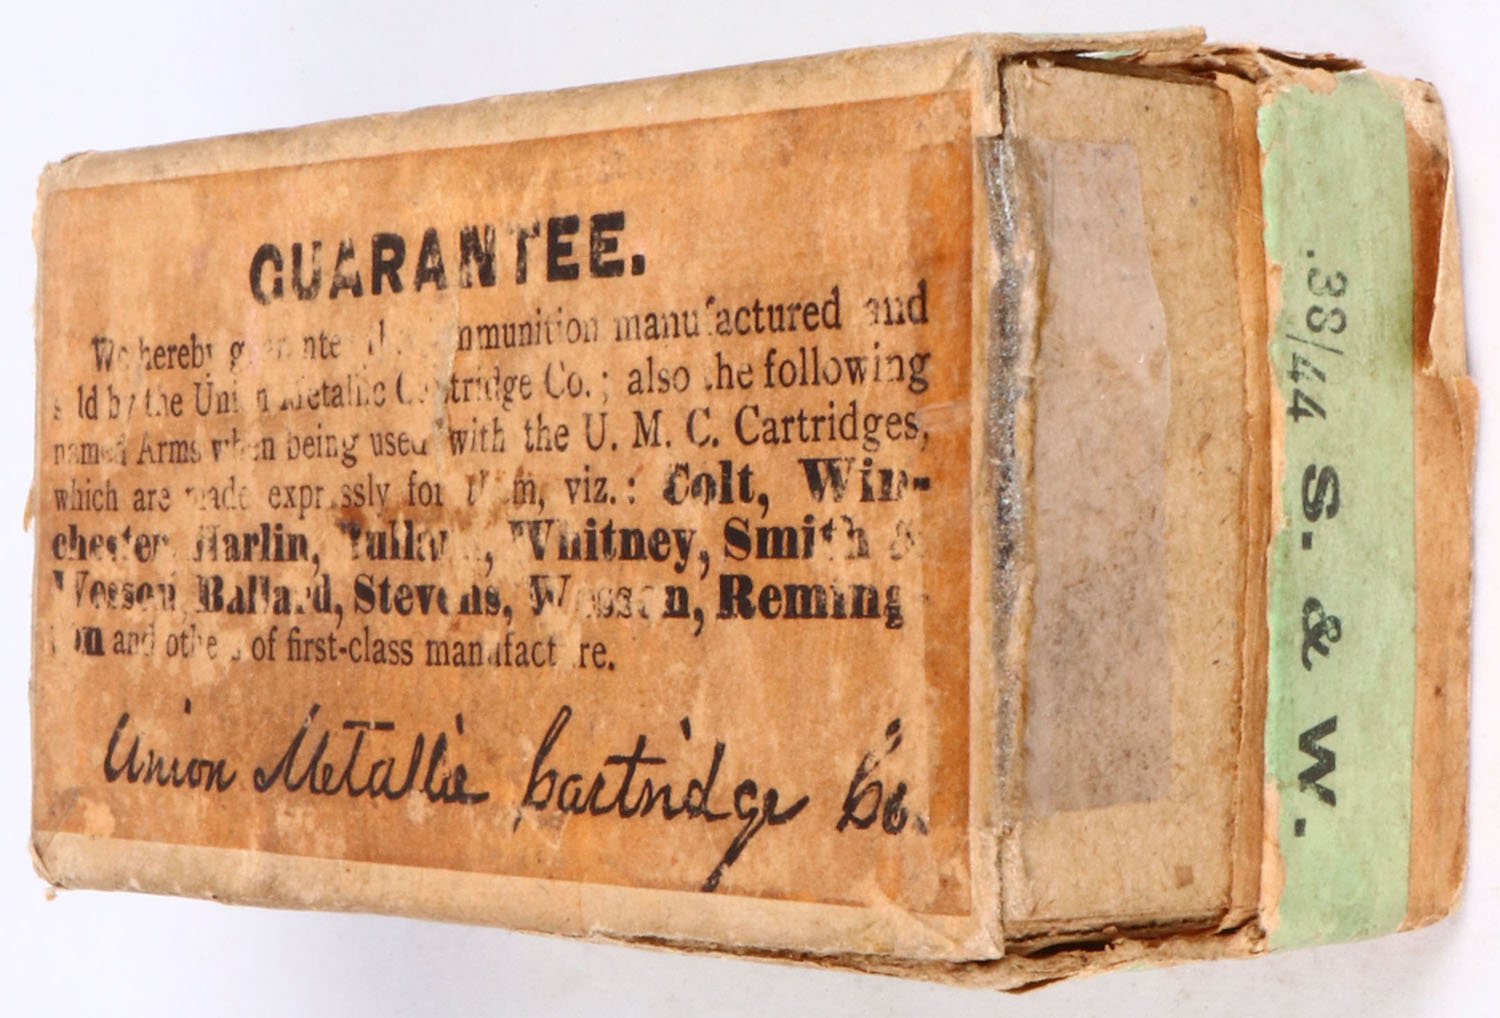 GUARANTEE.
We hereby guarantee all ammunition manufactured and
sold by the Union Metallic Cartridge Co.; also the following
named Arms when being used with the U. M. C. Cartridges,
which are made expressly for them, viz.: Colt, Win-
chester, Marlin, Bullard, Whitney, Smith &
Wesson, Ballard, Stevens, Wesson, Reming
ton and others of first-class manufacture.
Union Metallic Cartridge Co.
.38/44 S. & W.